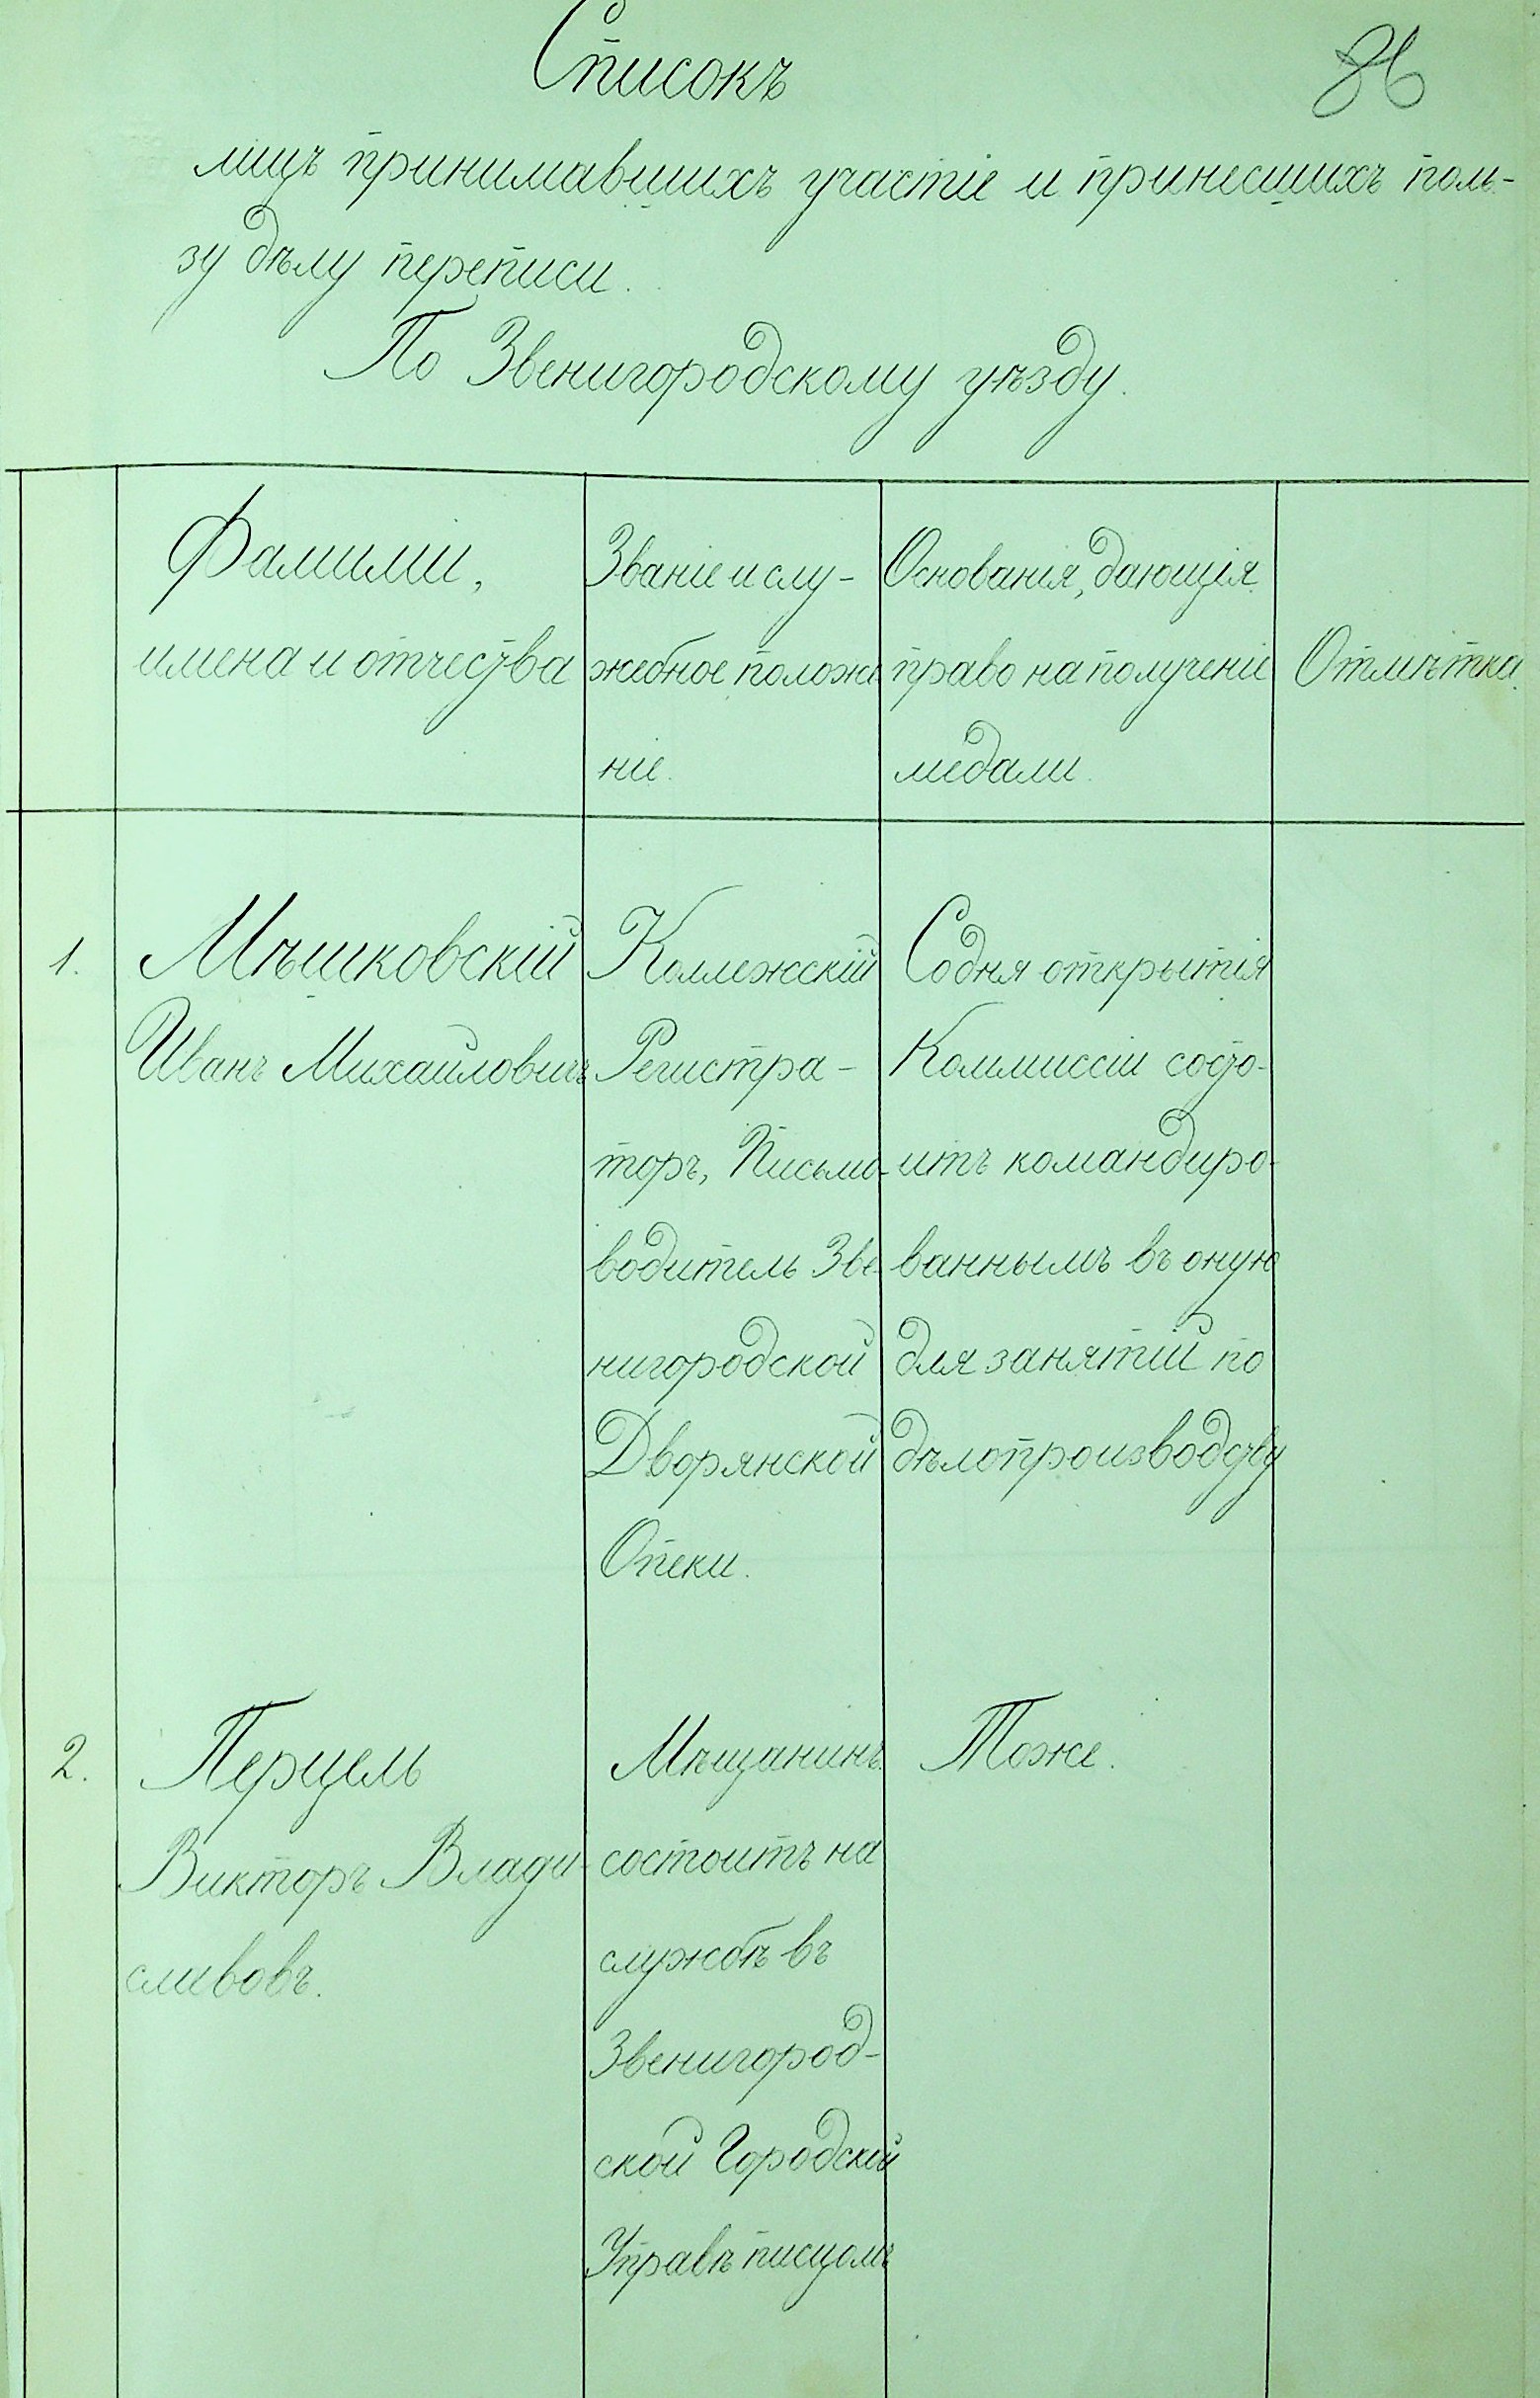 86
Списокъ
лицъ принимавшихъ участіе и принесшихъ поль-
зу дѣлу переписи.
По Звенигородскому уѣзду.
Фамиліи,
имена и отчества
Званіе и слу-
жебное положе
ніе.
Основанія, дающія
право на полученіе
медали.
Отмѣтка.
1.
Мѣшковскій
Иванъ Михаиловичъ
Коллежскій
Регистра-
торъ, Письмо-
водитель Зве-
нигородской
Дворянской
Опеки.
Со дня открытія
Коммиссіи состо-
итъ командиро-
ваннымъ въ оную
для занятій по
дѣлопроизводству
2.
Перцель
Викторъ Влади-
сливовъ.
Мѣщанинъ.
состоитъ на
службѣ въ
Звенигород-
ской Городской
Управѣ писцомъ
Тоже.